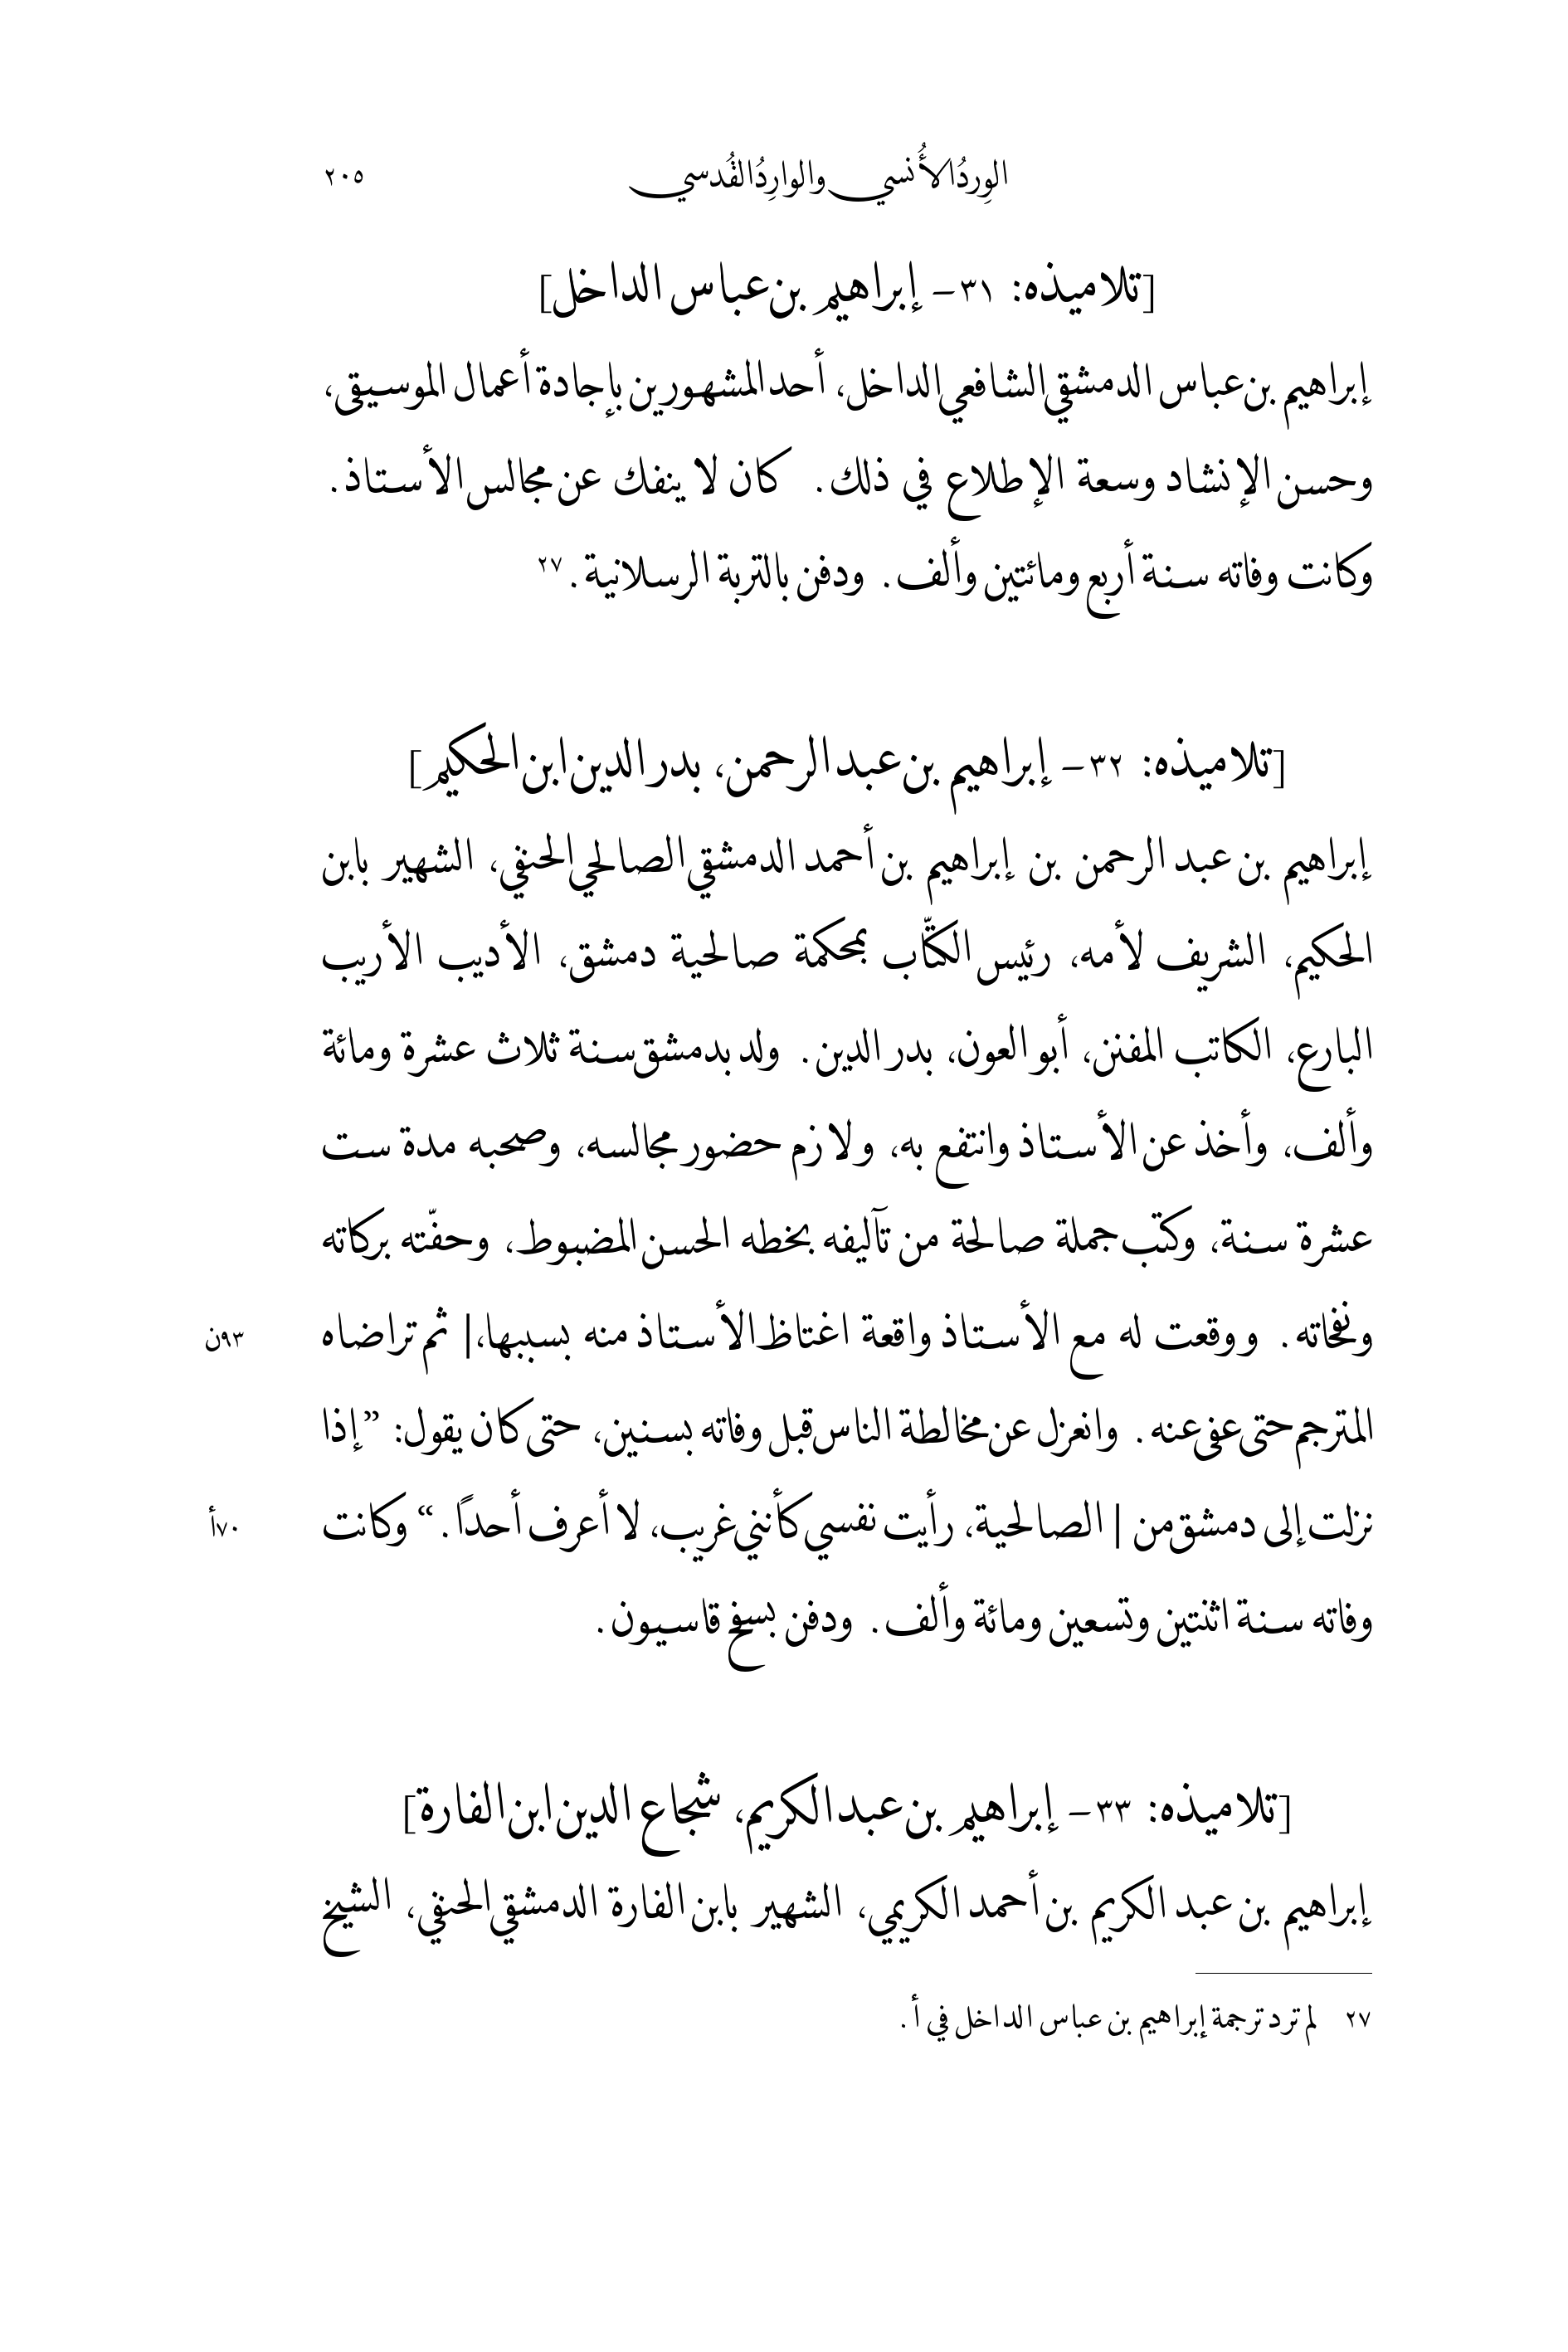 الوِردُ الأُنسي والوارِدُ القُدسي ٢٠٥
[تلاميذه: ٣١- إبراهيم بن عباس الداخل]
إبراهيم بن عباس الدمشقي الشافعي الداخل، أحد المشهورين بإجادة أعمال الموسيقى،
وحسن الإنشاد وسعة الإطلاع في ذلك. كان لا ينفك عن مجالس الأستاذ.
وكانت وفاته سنة أربع ومائتين وألف. ودفن بالتربة الرسلانية.٢٧
[تلاميذه: ٣٢- إبراهيم بن عبد الرحمن، بدر الدين ابن الحكيم]
إبراهيم بن عبد الرحمن بن إبراهيم بن أحمد الدمشقي الصالحي الحنفي، الشهير بابن
الحكيم، الشريف لأمه، رئيس الكتّاب بمحكمة صالحية دمشق، الأديب الأريب
البارع، الكاتب المفنن، أبو العون، بدر الدين. ولد بدمشق سنة ثلاث عشرة ومائة
وألف، وأخذ عن الأستاذ وانتفع به، ولازم حضور مجالسه، وصحبه مدة ست
عشرة سنة، وكتب جملة صالحة من تآليفه بخطه الحسن المضبوط، وحفّته بركاته
ونفحاته. ووقعت له مع الأستاذ واقعة اغتاظ الأستاذ منه بسببها،| ثم تراضاه ٩٣ن
المترجم حتى عفى عنه. وانعزل عن مخالطة الناس قبل وفاته بسنين، حتى كان يقول: ”إذا
نزلت إلى دمشق من | الصالحية، رأيت نفسي كأنني غريب، لا أعرف أحداً.“ وكانت ٧٠أ
وفاته سنة اثنتين وتسعين ومائة وألف. ودفن بسفح قاسيون.
[تلاميذه: ٣٣- إبراهيم بن عبد الكريم، شجاع الدين ابن الفارة]
إبراهيم بن عبد الكريم بن أحمد الكريمي، الشهير بابن الفارة الدمشقي الحنفي، الشيخ
٢٧ لم ترد ترجمة إبراهيم بن عباس الداخل في أ.